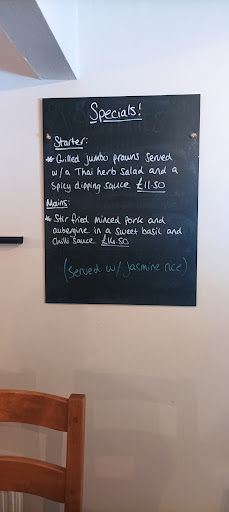 Specials!
Starter:
* Grilled jumbo prawns served
w/a Thai herb salad and a
spicy dipping sauce £11.50
Mains:
* Stir fried minced pork and
aubergine in a sweet basil and
chilli sauce £16.50
(Served w/ jasmine rice)